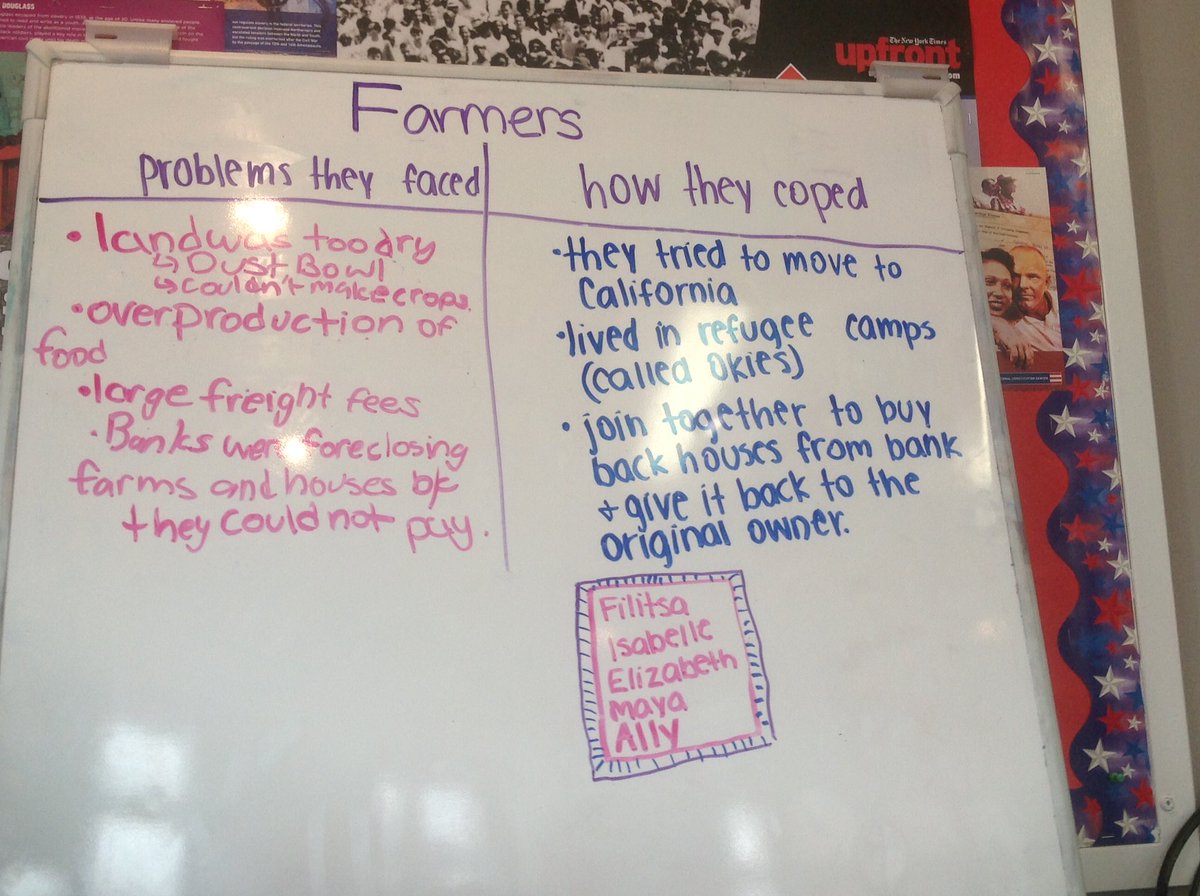 DOUGLASS
The New York Times
upfront
Farmers
problems they faced
how they coped
• land was too dry
↳ Dust Bowl
↳ couldn't make crops.
• overproduction of
food
• large freight fees
• Banks were foreclosing
farms and houses b/c
they could not pay.
• they tried to move to
California
• lived in refugee camps
(called Okies)
• join together to buy
back houses from bank
+ give it back to the
original owner.
Filitsa
Isabelle
Elizabeth
Maya
Ally